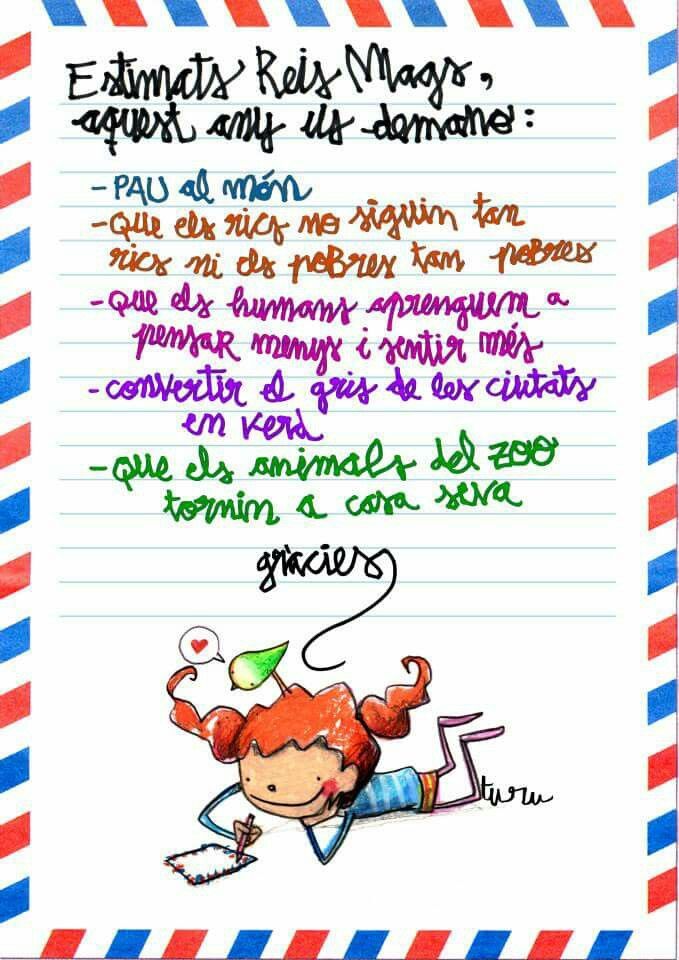 Estimats Reis Mags,
aquest any us demano:
- PAU al món
- Que els rics no siguin tan
rics ni els pobres tan pobres
- Que els humans aprenguem a
pensar menys i sentir més
- convertir el gris de les ciutats
en verd
- Que els animals del zoo
tornin a casa seva
gràcies
turu